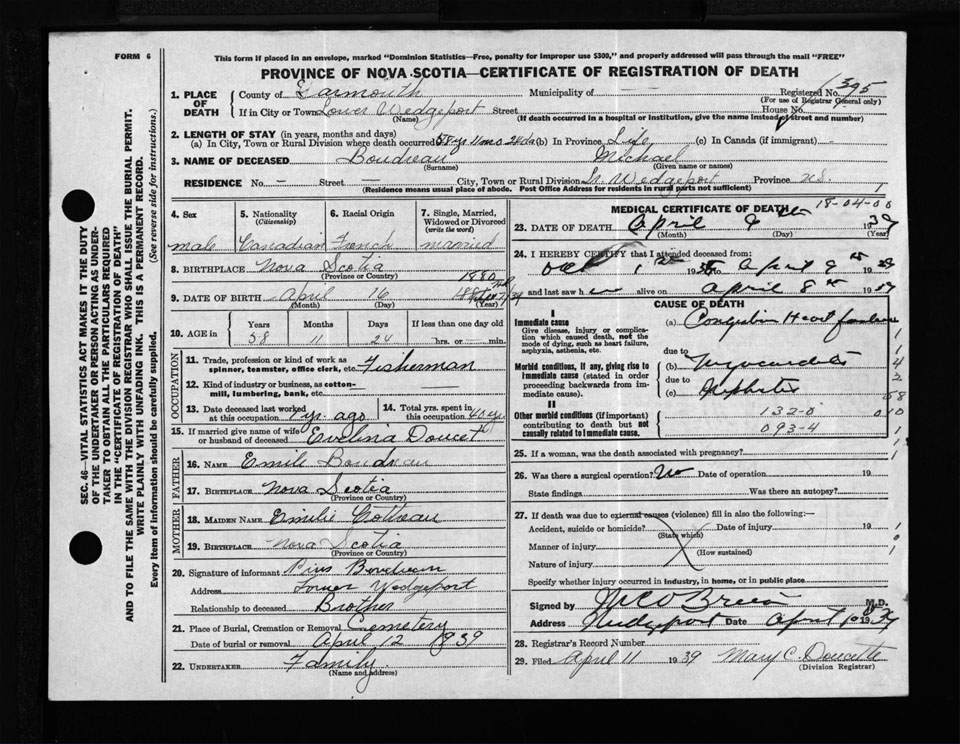 FORM 6
This form if placed in an envelope, marked "Dominion Statistics—Free, penalty for improper use $300," and properly addressed will pass through the mail "FREE"
PROVINCE OF NOVA SCOTIA—CERTIFICATE OF REGISTRATION OF DEATH
SEC. 46—VITAL STATISTICS ACT MAKES IT THE DUTY
OF THE UNDERTAKER OR PERSON ACTING AS UNDER-
TAKER TO OBTAIN ALL THE PARTICULARS REQUIRED
IN THE "CERTIFICATE OF REGISTRATION OF DEATH"
AND TO FILE THE SAME WITH THE DIVISION REGISTRAR WHO SHALL ISSUE THE BURIAL PERMIT.
WRITE PLAINLY WITH UNFADING INK. THIS IS A PERMANENT RECORD.
Every item of information should be carefully supplied. (See reverse side for instructions.)
1. PLACE OF DEATH County of Yarmouth Municipality of Registered No. 1395
(For use of Registrar General only)
If in City or Town Lower Wedgeport Street House No.
(Name) (If death occurred in a hospital or institution, give the name instead of street and number)
2. LENGTH OF STAY (in years, months and days)
(a) In City, Town or Rural Division where death occurred 58 y 11 mo 24 ds (b) In Province Life (c) In Canada (if immigrant) —
3. NAME OF DECEASED Boudreau Michael
(Surname) (Given name or names)
RESIDENCE No. — Street — City, Town or Rural Division Lr. Wedgeport Province N.S.
(Residence means usual place of abode. Post Office Address for residents in rural parts not sufficient)
4. Sex 5. Nationality (Citizenship) 6. Racial Origin 7. Single, Married, Widowed or Divorced (write the word)
male Canadian French married
8. BIRTHPLACE Nova Scotia
(Province or Country)
1880
9. DATE OF BIRTH April 16
(Month) (Day) (Year)
10. AGE in Years Months Days If less than one day old
58 11 24 hrs. or min.
OCCUPATION
11. Trade, profession or kind of work as spinner, teamster, office clerk, etc. Fisherman
12. Kind of industry or business, as cotton-mill, lumbering, bank, etc.
13. Date deceased last worked at this occupation 1 yr. ago 14. Total yrs. spent in this occupation 40 yrs
15. If married give name of wife or husband of deceased Evelina Doucet
FATHER
16. NAME Emile Boudreau
17. BIRTHPLACE Nova Scotia
(Province or Country)
MOTHER
18. MAIDEN NAME Emilie Cottreau
19. BIRTHPLACE Nova Scotia
(Province or Country)
20. Signature of informant Pius Boudreau
Address Lower Wedgeport
Relationship to deceased Brother
21. Place of Burial, Cremation or Removal Cemetery
Date of burial or removal April 12 1939
22. UNDERTAKER Family
(Name and address)
MEDICAL CERTIFICATE OF DEATH
18-04-00
23. DATE OF DEATH April 9th 1939
(Month) (Day) (Year)
24. I HEREBY CERTIFY that I attended deceased from:
Oct 1st 1938 to April 9th 1939
and last saw h im alive on April 8th 1939
CAUSE OF DEATH
I
Immediate cause
Give disease, injury or complication which caused death, not the mode of dying, such as heart failure, asphyxia, asthenia, etc.
(a) Congestive Heart failure
due to
Morbid conditions, if any, giving rise to immediate cause (stated in order proceeding backwards from immediate cause).
(b) Myocarditis
due to
(c) Nephritis
II
Other morbid conditions (if important) contributing to death but not causally related to immediate cause.
132-0
093-4
25. If a woman, was the death associated with pregnancy?
26. Was there a surgical operation? No Date of operation 19
State findings Was there an autopsy?
27. If death was due to external causes (violence) fill in also the following:—
Accident, suicide or homicide? Date of injury 19
(State which)
Manner of injury
(How sustained)
Nature of injury
Specify whether injury occurred in industry, in home, or in public place
Signed by M.D.
Address Wedgeport Date April 10 1939
28. Registrar's Record Number
29. Filed April 11 1939 Mary C. Doucette
(Division Registrar)